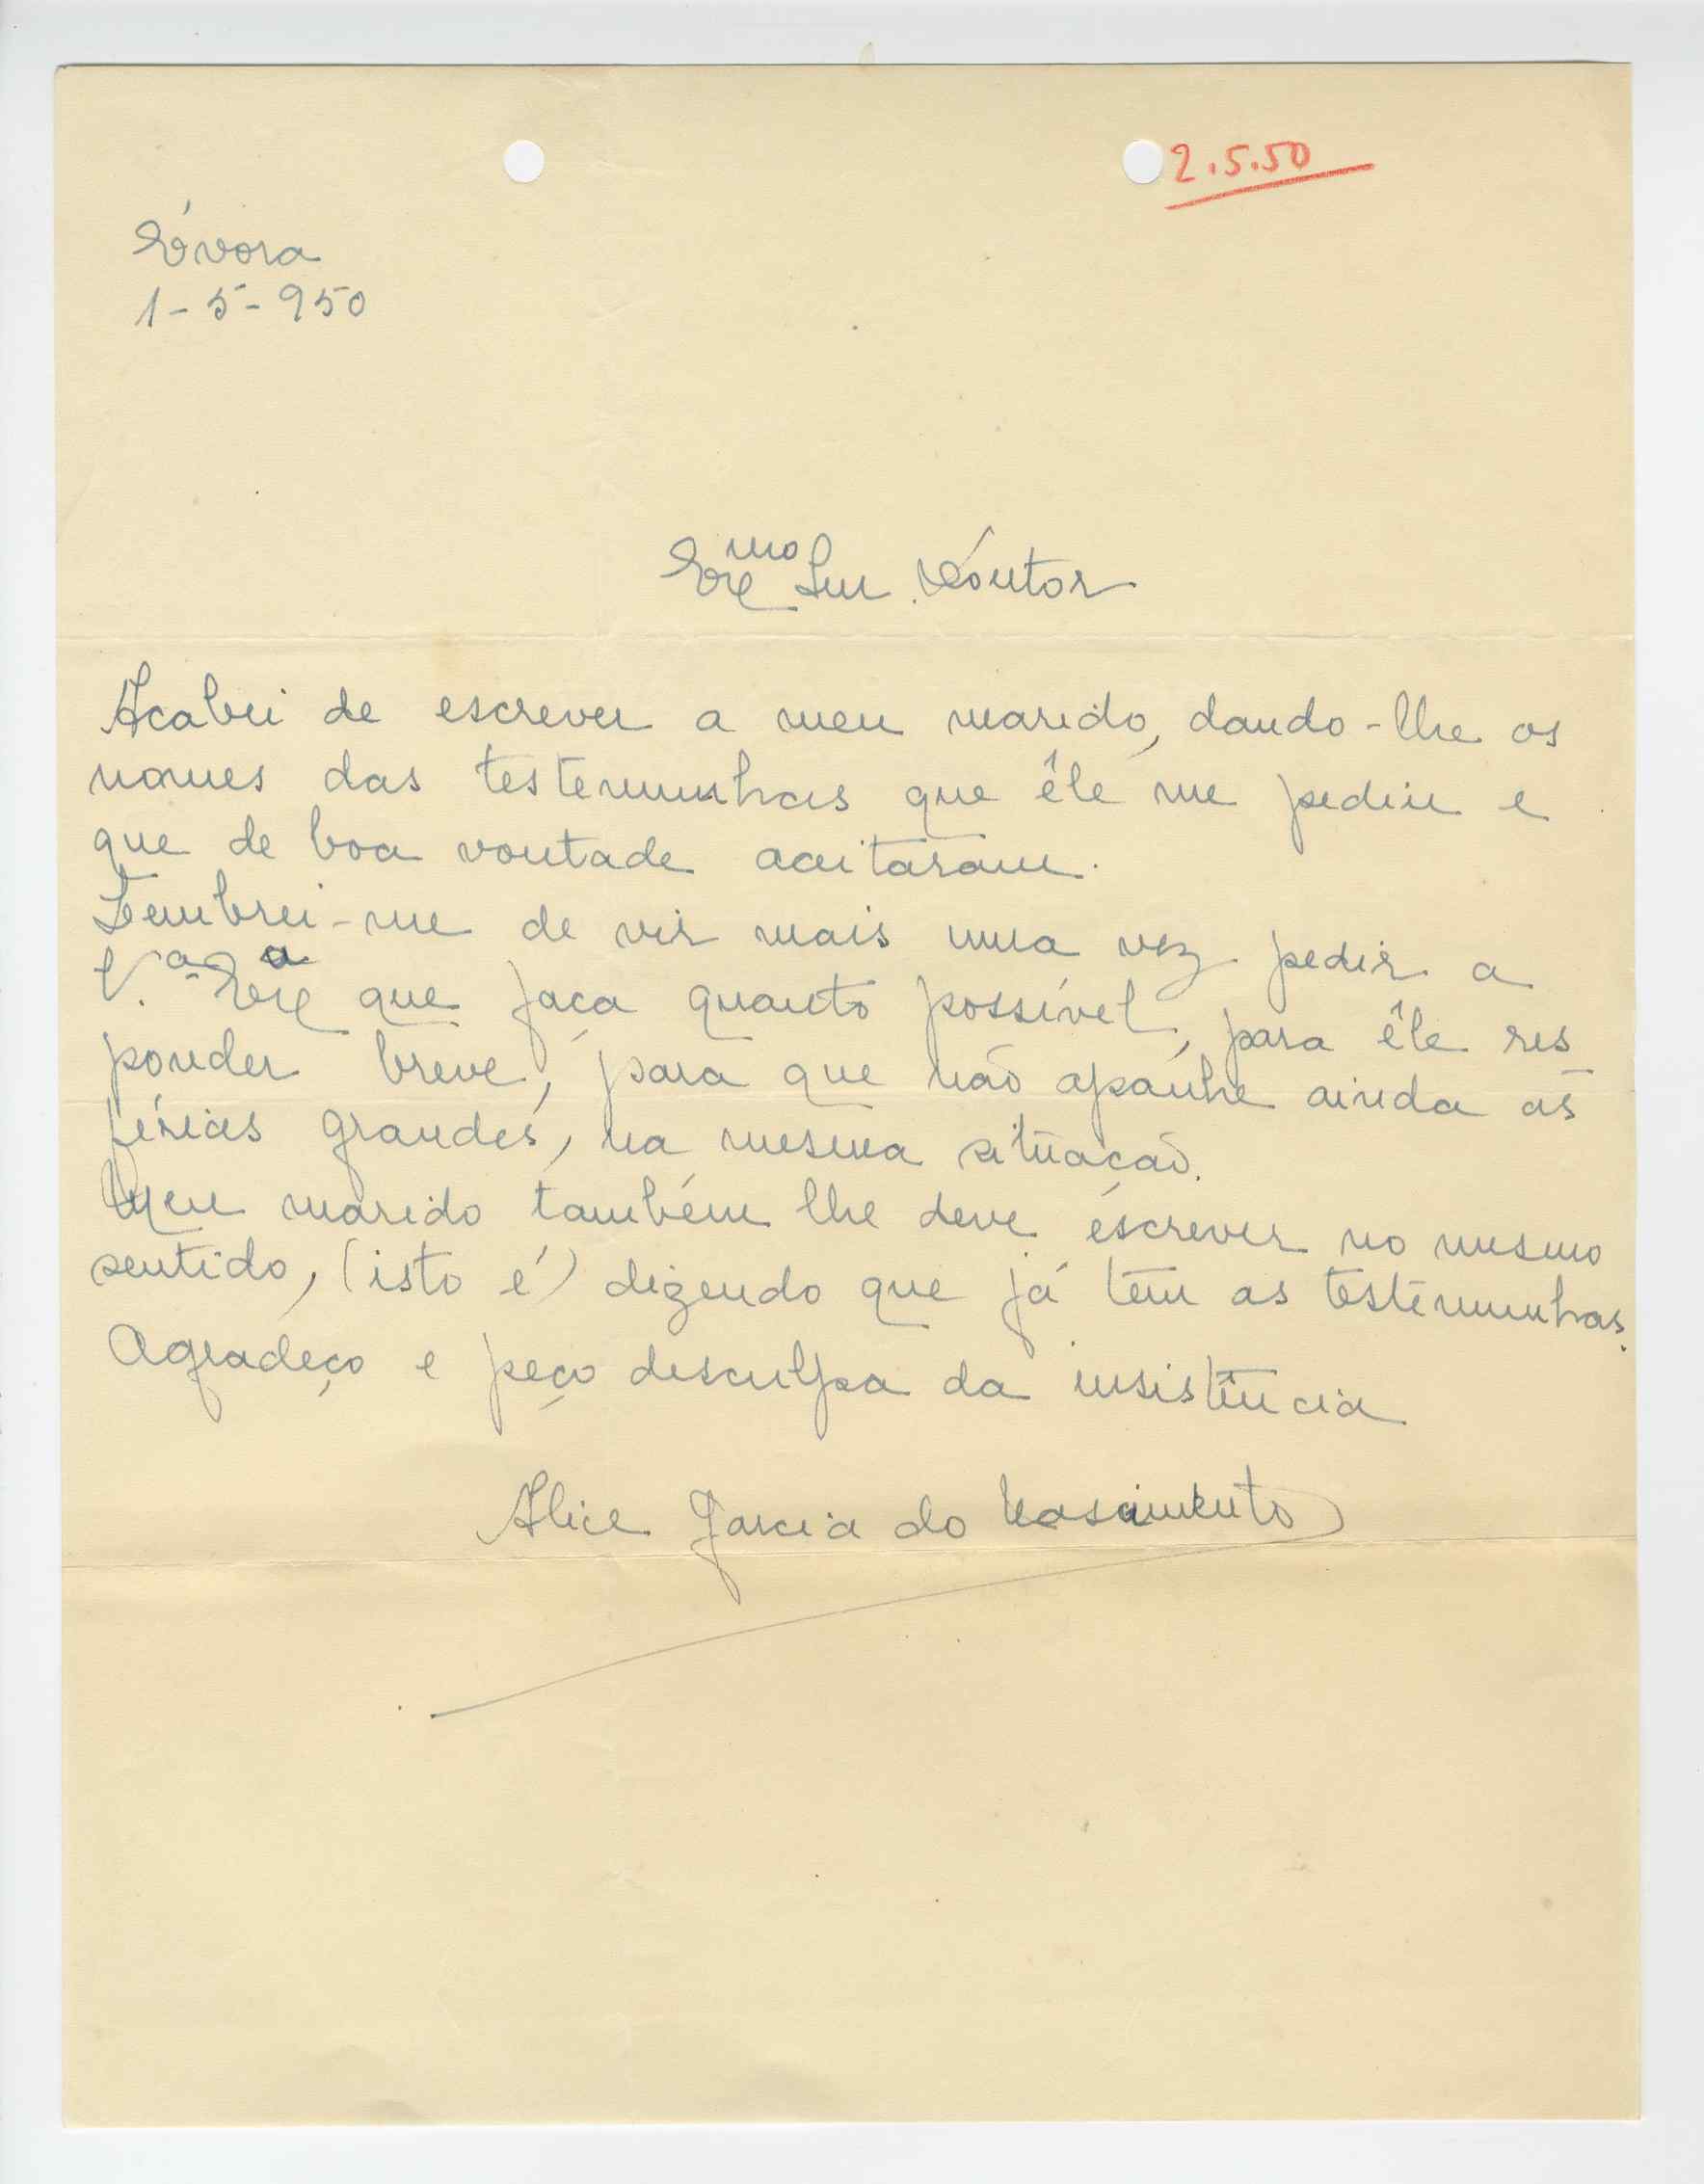 2.5.50
Évora
1-5-950
Exmo Snr. Doutor
Acabei de escrever a meu marido, dando-lhe os
nomes das testemunhas que êle me pediu e
que de boa vontade aceitaram.
Lembrei-me de vir mais uma vez pedir a
V.ª Exª que faça quanto possível, para êle res
ponder breve, para que não apanhe ainda as
férias grandes, na mesma situação.
Meu marido também lhe deve escrever no mesmo
sentido, (isto é) dizendo que já tem as testemunhas.
Agradeço e peço desculpa da insistência
Alice Garcia do Nascimento